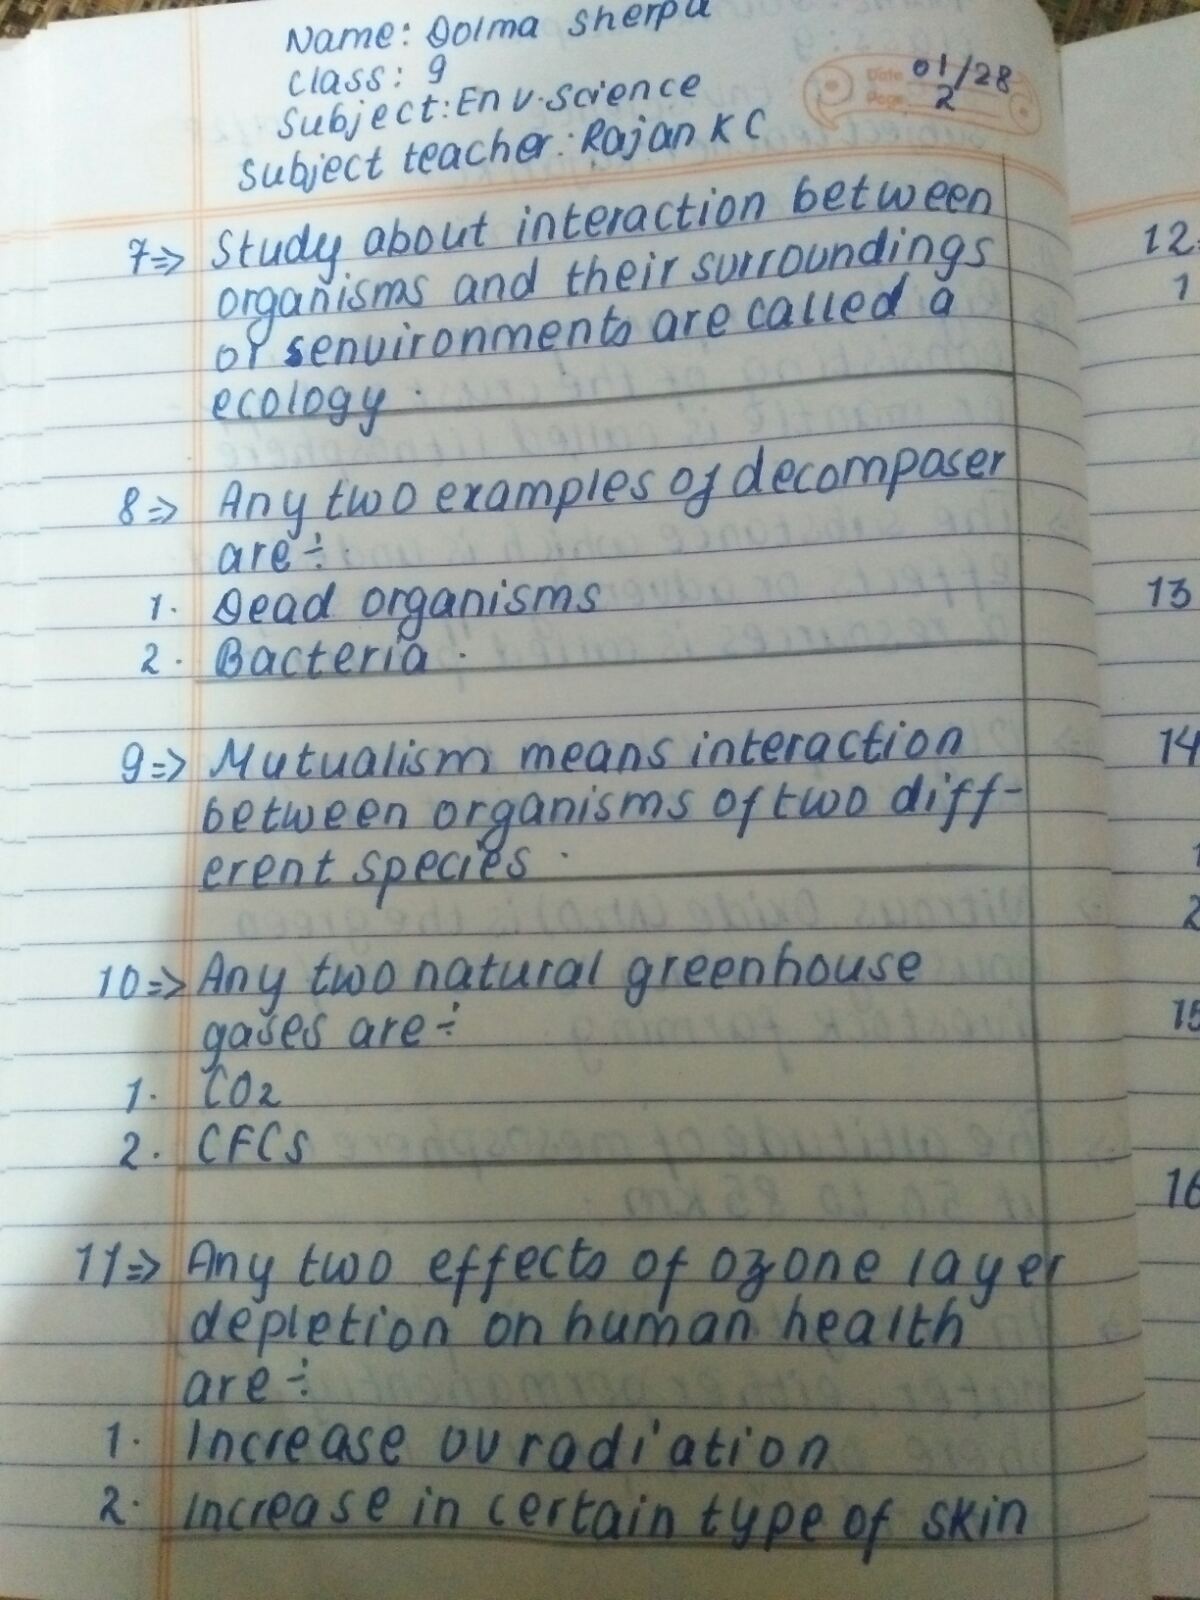 Name: Dolma Sherpa
class: 9
Subject: Env. Science
Subject teacher: Rajan K C
Date 01/28
Page 2
7=> Study about interaction between
organisms and their surroundings
or senvironments are called a
ecology.
8=> Any two examples of decomposer
are ÷
1. Dead organisms
2. Bacteria.
9=> Mutualism means interaction
between organisms of two diff-
erent species.
10=> Any two natural greenhouse
gases are ÷
1. CO2
2. CFCS
11=> Any two effects of ozone layer
depletion on human health
are ÷
1. Increase uv radiation
2. Increase in certain type of skin
12
1
13
14
1
2
15
16